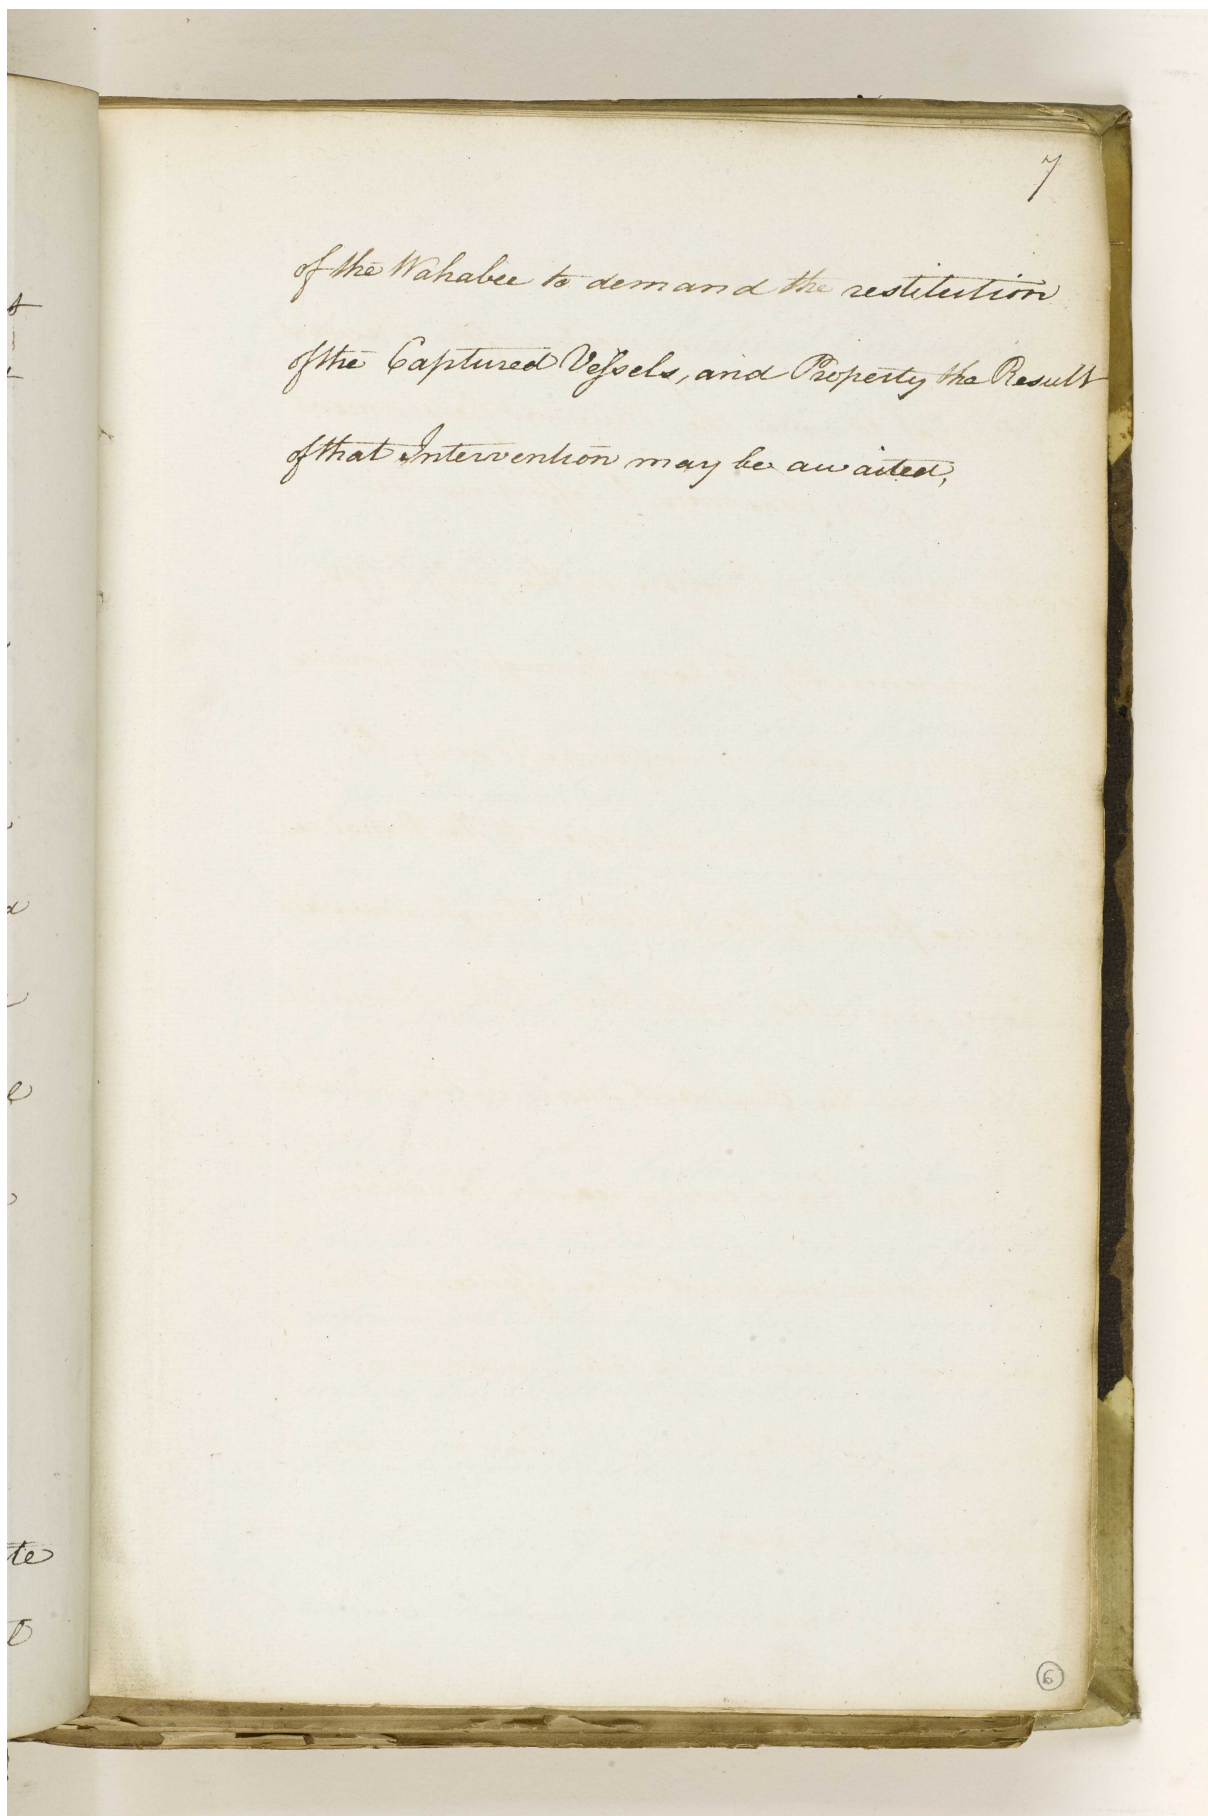 7
of the Wahabee to demand the restitution
of the Captured Veſsels, and Property the Result
of that Intervention may be awaited,
te
6